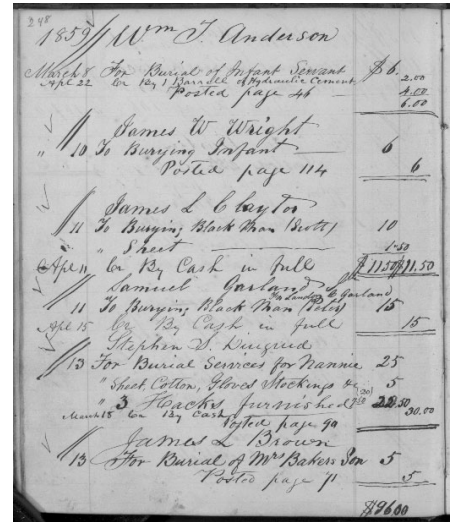 248
1859 Wm T. Anderson
March 8 For Burial of Infant Servant $6.
Apl 22 Cr By 1 Barrell of Hydraulic Cement 2.00
Posted page 46 4.00
6.00
James W Wright
" 10 To Burying Infant 6
Posted page 114 6
James L Clayton
" 11 To Burying Black Man (Scott) 10
" Sheet 1.50
Apl 11 Cr By Cash in full $11.50 $11.50
Samuel Garland
11 To Burying Black Man 15
Apl 15 Cr By Cash in full 15
Stephen D.
13 For Burial Services for Nannie 25
" Sheet Cotton, Gloves Stockings &c 5
" 3 Hacks furnished
March 15 Cr By Cash 30.00
Posted page 90
James L Brown
13 For Burial of Mrs Bakers Son 5
Posted page 71 5
$96.00